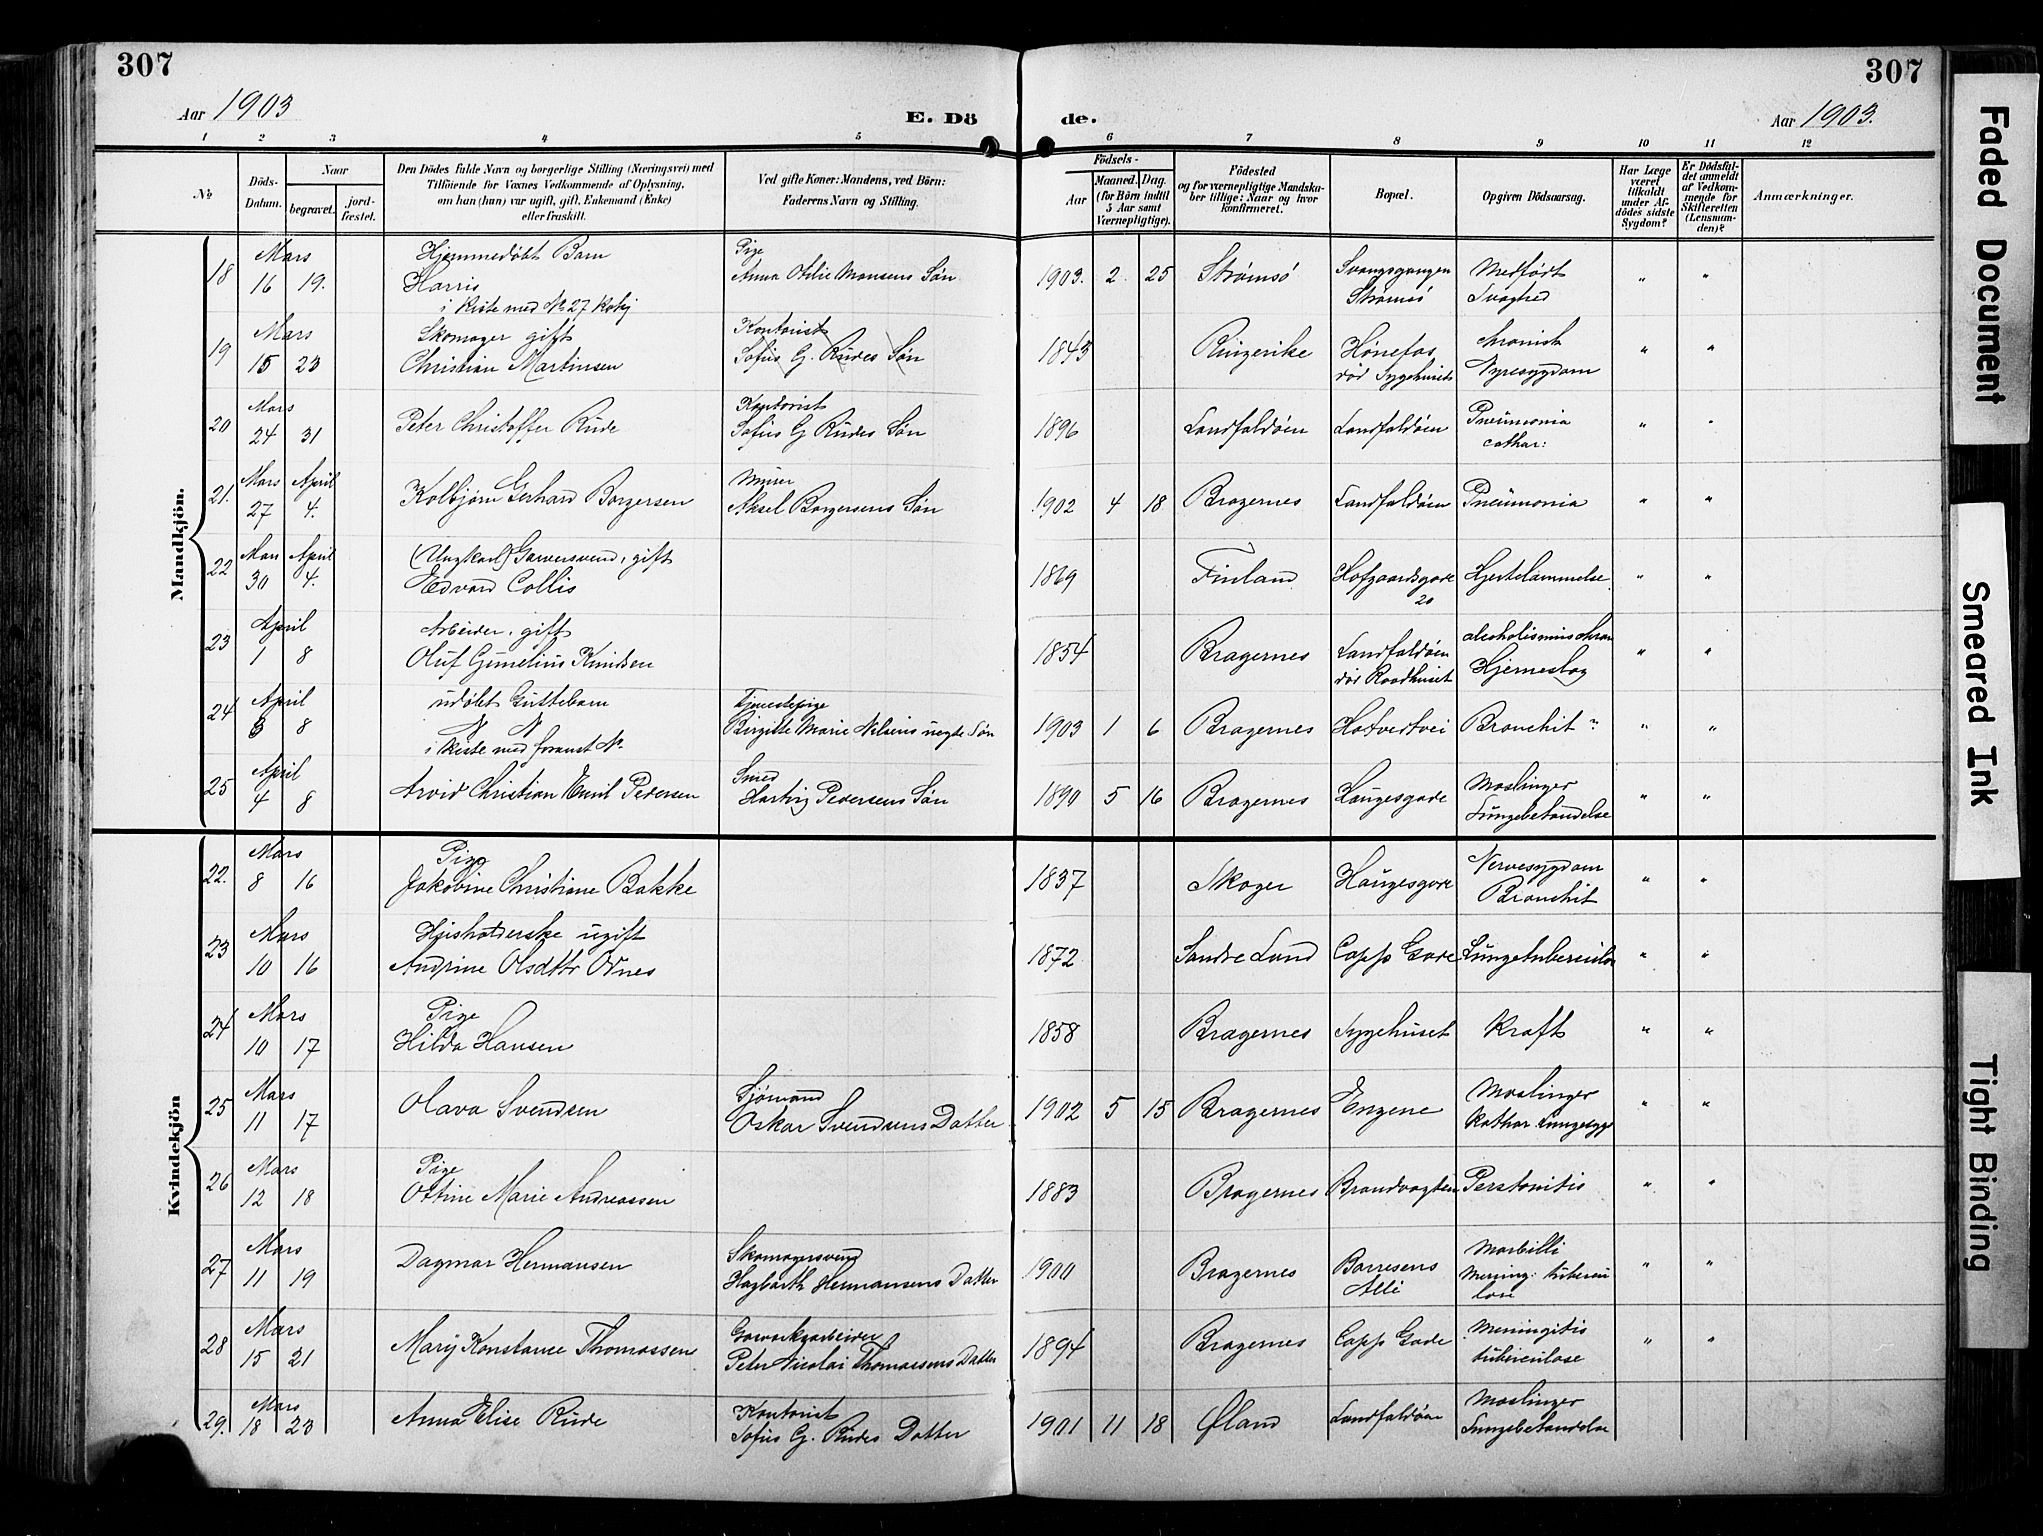 307
307
Aar 1903
E. Dö
de.
Aar 1903.
1 2 3 4 5 6 7 8 9 10 11 12
No
Döds-Datum.
Naar
begravet.
jordfæstet.
Den Dödes fulde Navn og borgerlige Stilling (Næringsvei) med
Tilföiende for Voxnes Vedkommende af Oplysning,
om han (hun) var ugift, gift, Enkemand (Enke)
eller fraskilt.
Ved gifte Koner: Mandens, ved Börn:
Faderens Navn og Stilling.
Födsels-
Aar
Maaned. Dag.
(for Börn indtil
5 Aar samt
Værnepligtige).
Födested
og for værnepligtige Mandskaber tillige: Naar og hvor
konfirmeret.
Bopæl.
Opgiven Dödsaarsag.
Har Læge
været
tilkaldt
under Afdödes sidste
Sygdom?
Er Dödsfaldet anmeldt
af Vedkommende for
Skifteretten
(Lensmanden)?
Anmærkninger.
Mandkjön.
18 Mars 16 19. Hjemmedöbt Barn Harris i Kiste med No 27 Pige Anna Otilie Monsens Søn 1903. 2. 25 Strømsö Svangsgangen Strømsö Medfødt Svaghed " "
19 Mars 15 23 Skomager gift Christian Martinsen Kontorist Sofus G. Rudes Søn 1843 Ringerike Hønefos død Sygehuset chronisk Nyresygdom " "
20 Mars 24 31 Peter Christoffer Rude Kontorist Sofus G Rudes Søn 1896 Landfaldøen Landfaldøen Pneumonia cathar: " "
21. Mars 27 April 4. Kolbjørn Gerhard Borgersen Murer Aksel Borgersens Søn 1902 4 18 Bragernes Landfaldøen Pneumonia " "
22 Mars 30 April 4. (Ungkarl) Garversvend, gift Edvard Collis 1869 Finland Hofgaardsgade 20 Hjertelammelse " "
23 April 1 8 Arbeider, gift Oluf Gumelius Knudsen 1854 Bragernes Landfaldøen død Raadhuset alcoholismus chron Hjerneslag " "
24 April 3 8 udöbt Guttebarn N N i Kiste med foranst No Tjenestepige Birgitte Marie Nelsens uegte Søn 1903 1 6 Bragernes Hotvedtvei Bronchit " "
25 April 4 8 Arvid Christian Emil Pedersen Smed Hartvig Pedersens Søn 1890 5 16 Bragernes Haugesgade Moslinger Lungebetændelse " "
Kvindekjön
22. Mars 8 16 Pige Jakobine Christiane Bakke 1837 Skoger Haugesgade Nervesygdom Bronchit " "
23 Mars 10 16 Husholderske ugift Andrine Olsdttr Odnes 1872 Søndre Land Capps Gade Lungetuberculos " "
24 Mars 10 17 Pige Hilda Hansen 1858 Bragernes Sygehuset Kræft " "
25 Mars 11 17 Olava Svendsen Sjömand Oskar Svendsens Datter 1902 5 15 Bragernes Engene Moslinger Kathar Lungesyge " "
26 Mars 12 18 Pige Ottine Marie Andreassen 1883 Bragernes Brandvagten Peritonitis " "
27 Mars 11 19 Dagmar Hermansen Skomagersvend Hagbarth Hermansens Datter 1900 Bragernes Børresens Allé Morbilli Mening: tuberculose " "
28 Mars 15 21 Mary Konstance Thomassen Gasverksarbeider Peter Nicolai Thomassens Datter 1894 Bragernes Capps Gade Meningitis tuberculose " "
29. Mars 18 23 Anna Elise Rude Kontorist Sofus G. Rudes Datter 1901 11 18 Øland Landfaldøen Moslinger Lungebetændelse
Faded Document
Smeared Ink
Tight Binding